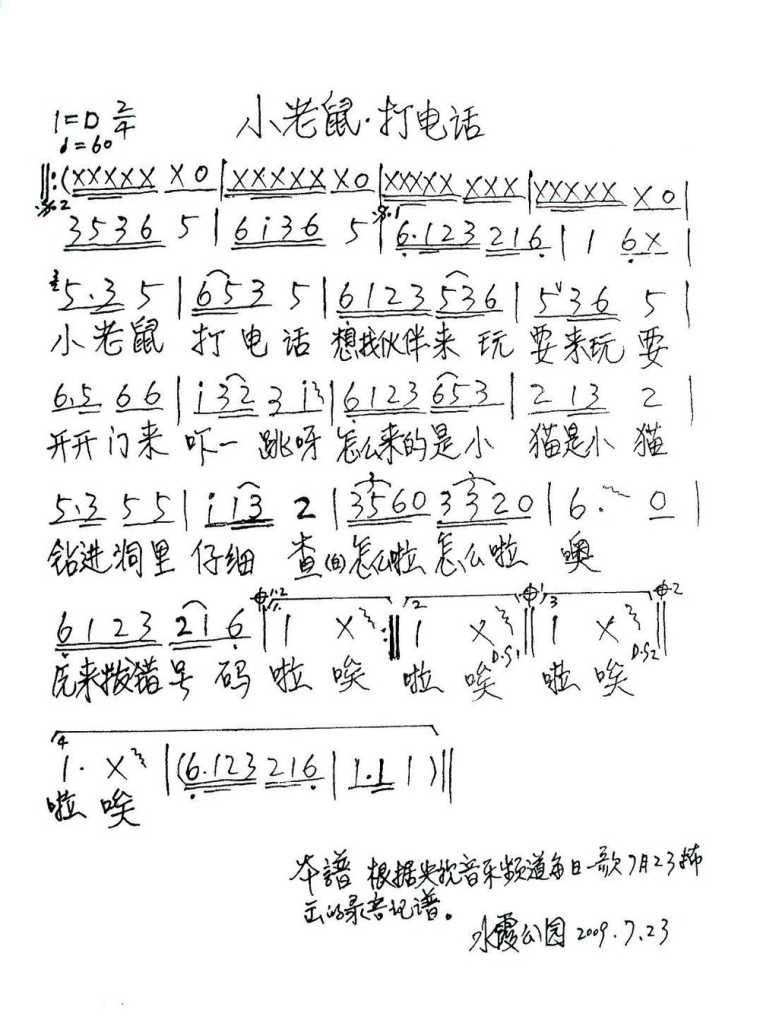 小老鼠·打电话
1=D 2/4
♩=60
‖:(XXXXX X0 | XXXXX X0 | XXXXX XXX | XXXXX X0 |
3536 5 | 6i36 5 | 6.123 216 | 1 6X |
5.3 5 | 653 5 | 6123 536 | 5 36 5 |
小老鼠 打电话 想找伙伴来 玩 耍来玩 耍
6.5 66 | i32 3 i | 6123 653 | 2 13 2 |
开开门来 吓一 跳呀 怎么来的是小 猫是小 猫
5.3 55 | i i3 2 | 3560 3320 | 6. 0 |
钻进洞里 仔细 查(白)怎么啦 怎么啦 噢
6123 216 ‖ 1 X :‖ 1 X ‖ 1 X ‖
来拨错号 码 啦 唉 啦 唉 啦 唉
1. X | (6.123 216 | 1.1 1) ‖
啦 唉
本譜 根据央视音乐频道每日一歌7月23播
出的录音记谱。
水霞公园 2009.7.23